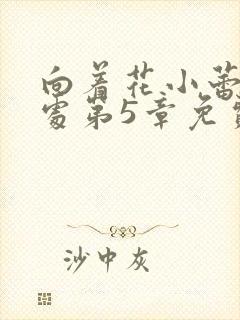 向着花小蕾
处第5章免
沙中灰